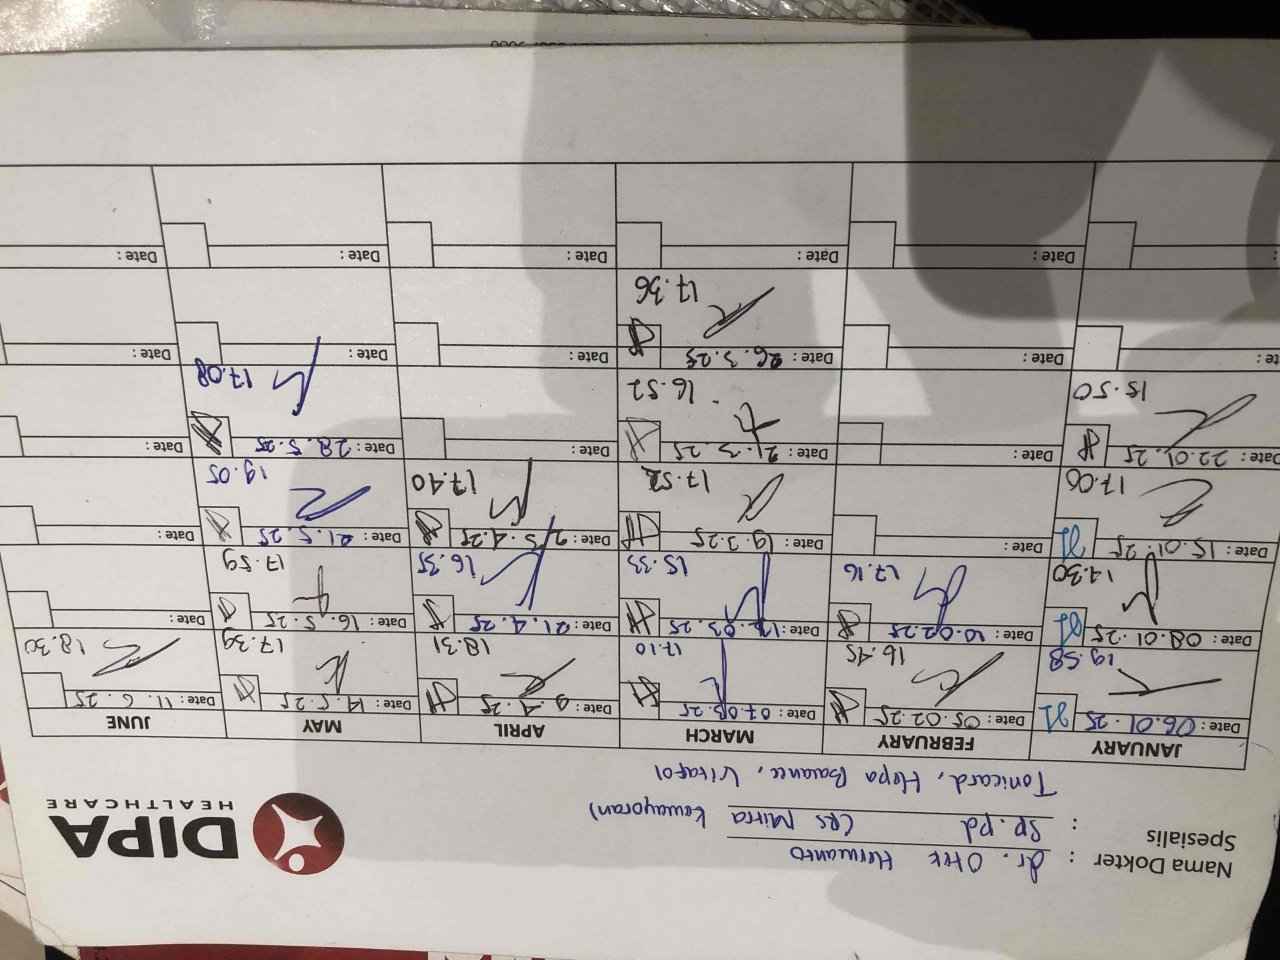 Nama Dokter : dr. Otte Hermanto
Spesialis : Sp.pd (RS Mitra Kemayoran)
Tonicard, Hepa Balance, Vitafol
DIPA
HEALTHCARE
JANUARY FEBRUARY MARCH APRIL MAY JUNE
Date : 06.01.25 Date : 05.02.25 Date : 07.03.25 Date : 9.4.25 Date : 14.5.25 Date : 11.6.25
19.58 16.45 17.10 18.31 17.39 18.30
Date : 08.01.25 Date : 10.02.25 Date : 12.03.25 Date : 21.4.25 Date : 16.5.25 Date :
14.30 17.16 15.33 16.35 17.59
Date : 15.01.25 Date : Date : 19.3.25 Date : 25.4.25 Date : 21.5.25 Date :
17.00 17.52 17.40 19.05
Date : 22.01.25 Date : Date : 21.3.25 Date : Date : 28.5.25 Date :
15.50 16.52 17.08
Date : Date : Date : 26.3.25 Date : Date : Date :
17.36
Date : Date : Date : Date : Date :